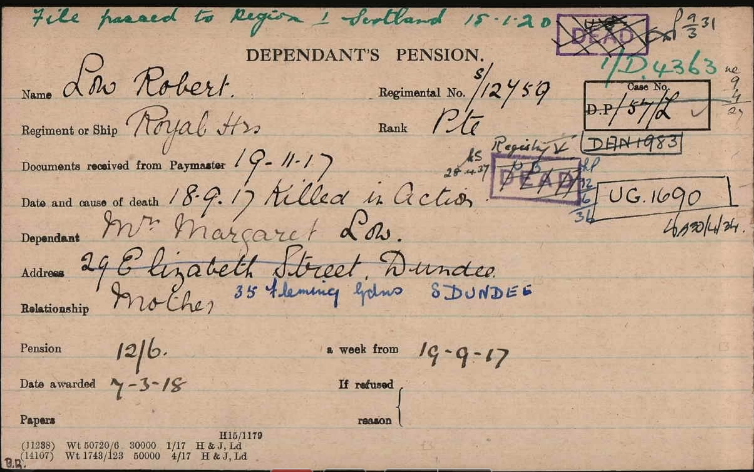 File passed to Region 1 Scotland 15-1-20
DEAD
9/3 31
1/D.4363
DEPENDANT'S PENSION.
Name Low Robert.
Regimental No. S/12459
Case No.
D.P./57/L
Regiment or Ship Royal Hrs
Rank Pte
DAN1983
Documents received from Paymaster 19-11-17
Registry
DEAD
Date and cause of death 18.9.17 Killed in Action
UG.1690
Dependant Mrs Margaret Low.
Address 29 Elizabeth Street, Dundee
35 Fleming Gdns S DUNDEE
Relationship Mother
Pension 12/6. a week from 19-9-17
Date awarded 7-3-18 If refused
Papers reason
H15/1179
(11238) Wt 50720/6 30000 1/17 H & J, Ld
(14107) Wt 1743/123 50000 4/17 H & J, Ld
B.R.